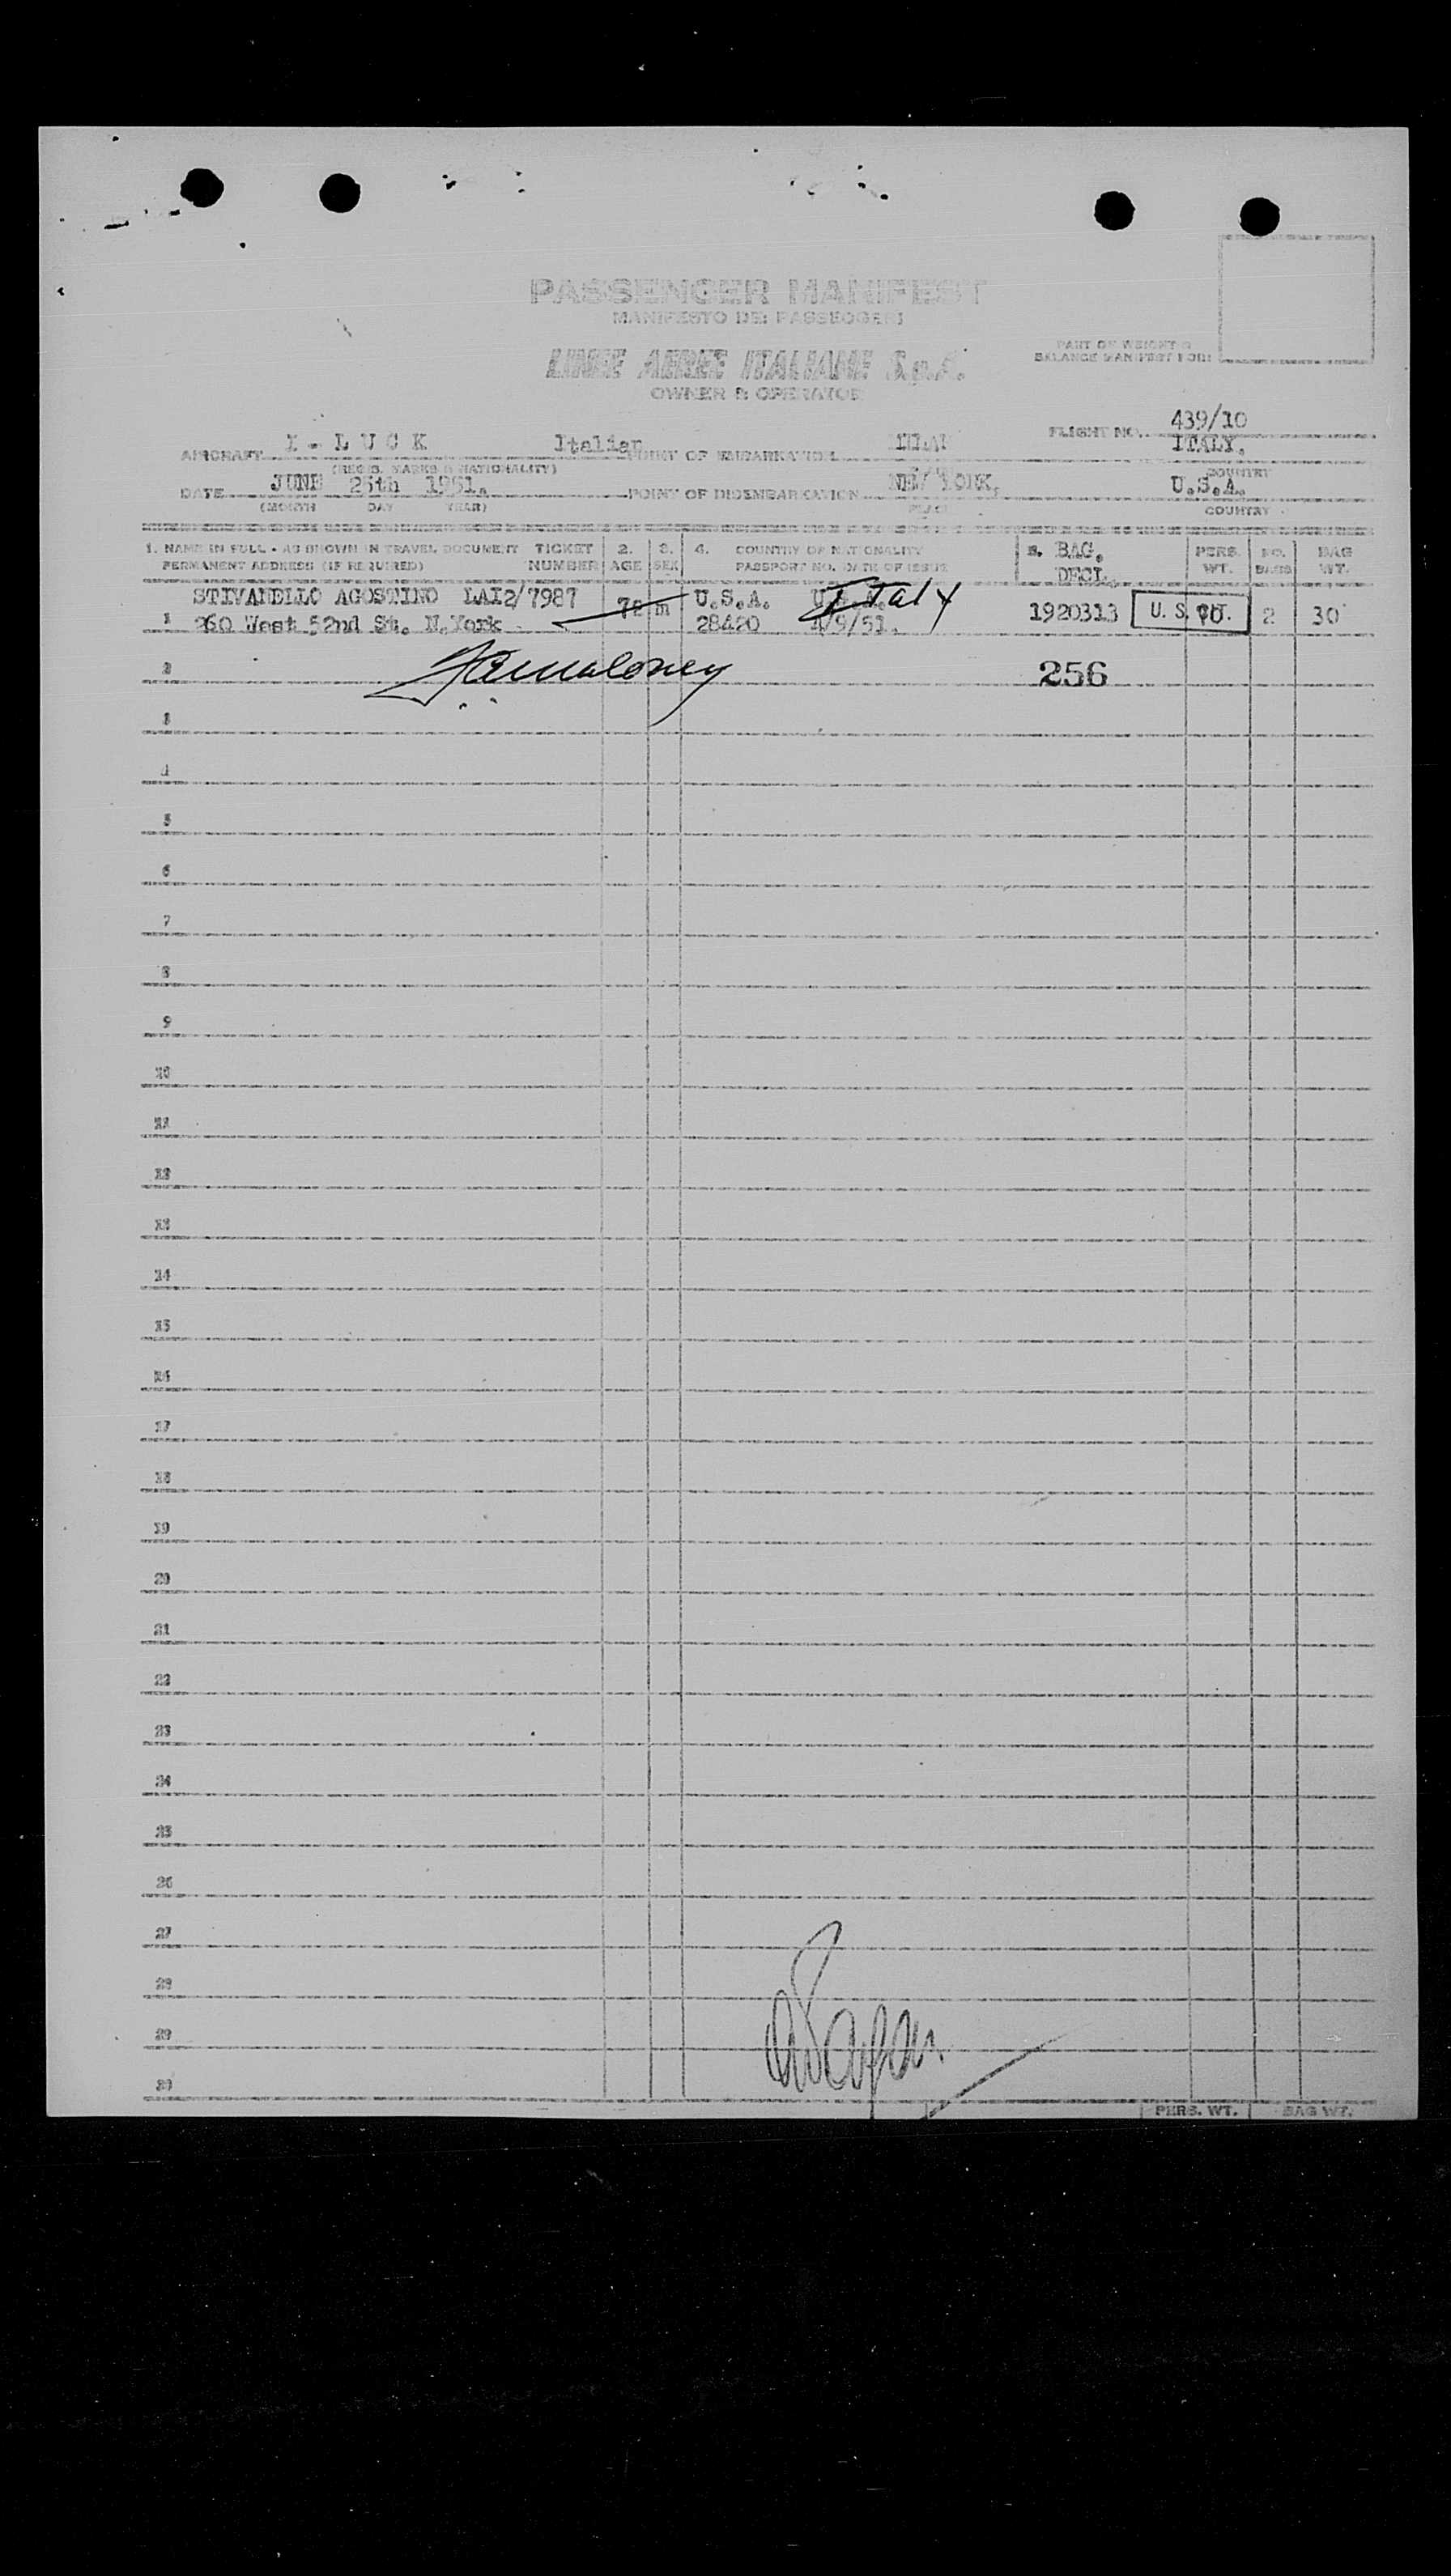 PASSENGER MANIFEST
MANIFESTO DEI PASSEGGERI
LINEE AEREE ITALIANE S.p.A.
OWNER & OPERATOR
PART OF WEIGHT &
BALANCE MANIFEST FOR:
AIRCRAFT I - L U C K Italian POINT OF EMBARKATION FLIGHT NO. 439/10
ITALY.
(REGIS. MARKS & NATIONALITY) COUNTRY
DATE JUNE 25th 1951. POINT OF DISEMBARKATION NEW YORK, U.S.A.
(MONTH DAY YEAR) PLACE COUNTRY
1. NAME IN FULL - AS SHOWN IN TRAVEL DOCUMENT TICKET 2. 3. 4. COUNTRY OF NATIONALITY 5. BAG. PERS. NO. BAG
PERMANENT ADDRESS (IF REQUIRED) NUMBER AGE SEX PASSPORT NO. DATE OF ISSUE DECL. WT. BAGS WT.
STIVANELLO AGOSTINO LAI2/7987 72 m U.S.A. U.S.A. Italy
1 260 West 52nd St. N.York 28420 4/9/51. 1920313 U. S. 2 30
2 256
3
4
5
6
7
8
9
10
11
12
13
14
15
16
17
18
19
20
21
22
23
24
25
26
27
28
29
30
PERS. WT. BAG WT.